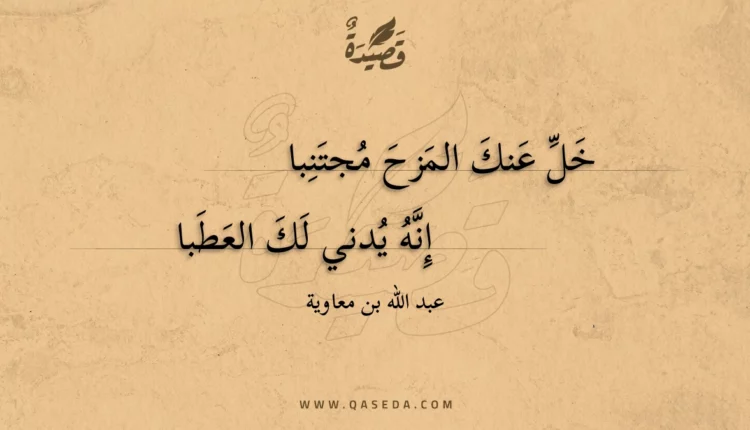 قَصِيْدَةٌ
خَلِّ عَنكَ المَزحَ مُجتَنِبا
إِنَّهُ يُدني لَكَ العَطَبا
عبد الله بن معاوية
WWW.QASEDA.COM